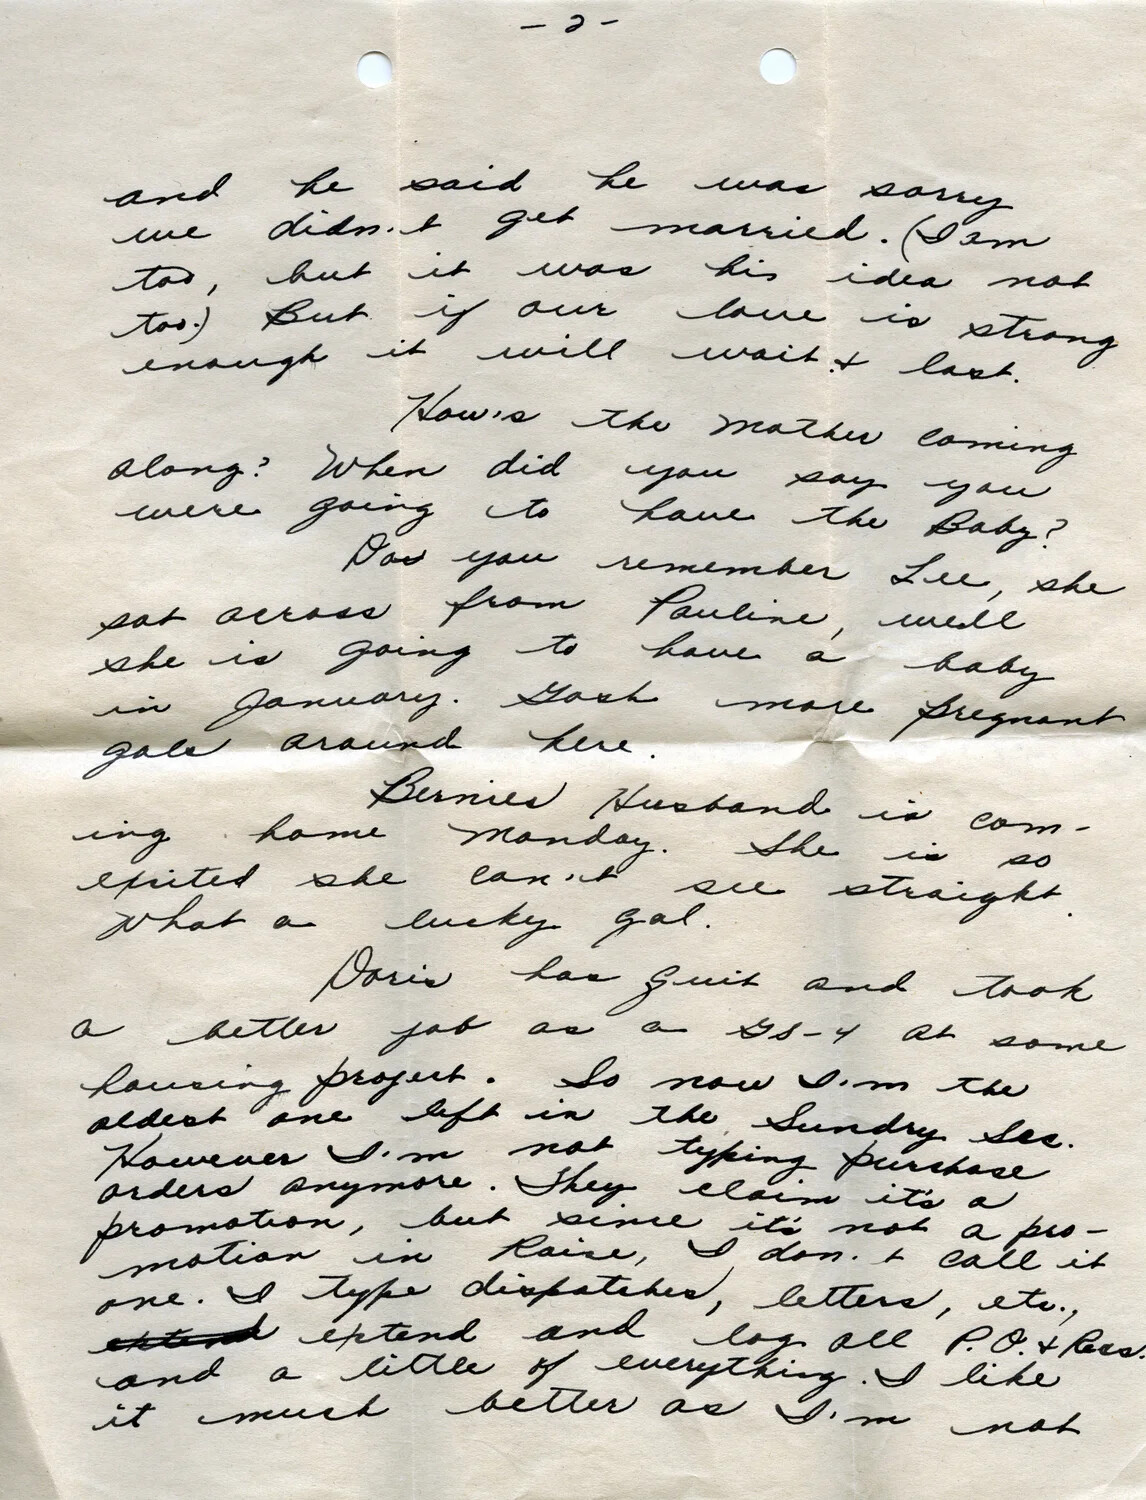 - 2 -
and he said he was sorry
we didn't get married. (I am
too, but it was his idea not
too.) But if our love is strong
enough it will wait & last.
How's the Mother coming
along? When did you say you
were going to have the Baby?
Do you remember Lee, she
sat across from Pauline, well
she is going to have a baby
in January. Gosh more pregnant
gals around here.
Bernies Husband is com-
ing home Monday. She is so
exsited she can't see straight.
What a lucky gal.
Doris has quit and took
a better job as a GS-4 at some
housing project. So now I'm the
oldest one left in the Sundry Sec.
However I'm not typing purchase
orders anymore. They claim it's a
promotion, but since it's not a pro-
motion in Raise, I don't call it
one. I type dispatches, letters, etc.,
extend extend and log all P.O. & Recs.
and a little of everything. I like
it much better as I'm not